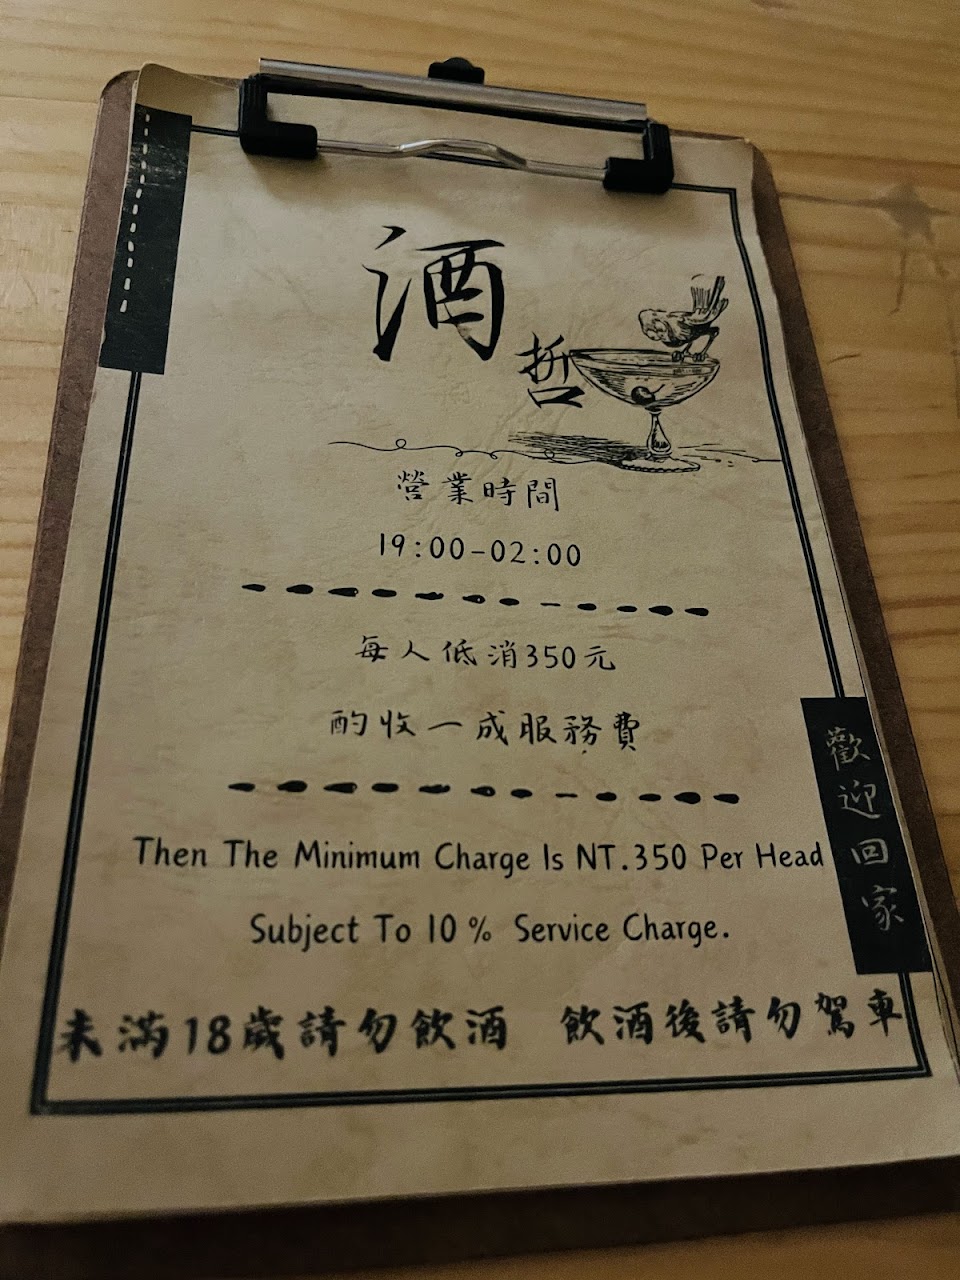 酒
哲
營業時間
19:00-02:00
每人低消350元
酌收一成服務費
Then The Minimum Charge Is NT.350 Per Head
Subject To 10% Service Charge.
歡迎回家
未滿18歲請勿飲酒 飲酒後請勿駕車